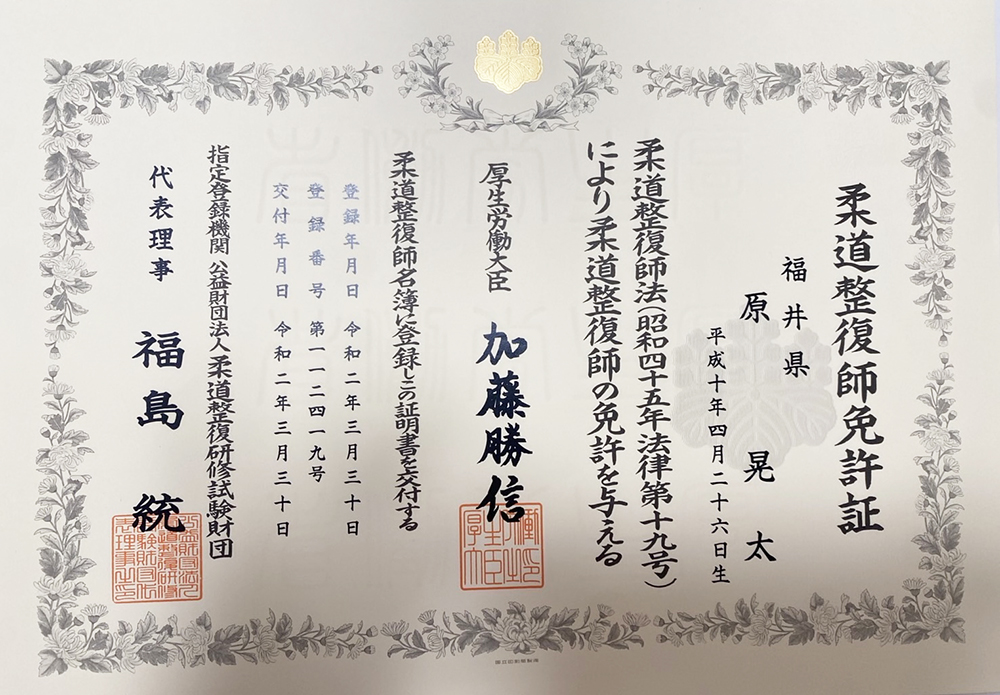 柔道整復師免許証
福井県
原 晃太
平成十年四月二十六日生
柔道整復師法(昭和四十五年法律第十九号)
により柔道整復師の免許を与える
厚生労働大臣 加藤勝信
柔道整復師名簿に登録しこの証明書を交付する
登録年月日 令和二年三月三十日
登録番号 第一一二四一九号
交付年月日 令和二年三月三十日
指定登録機関 公益財団法人 柔道整復研修試験財団
代表理事 福島 統